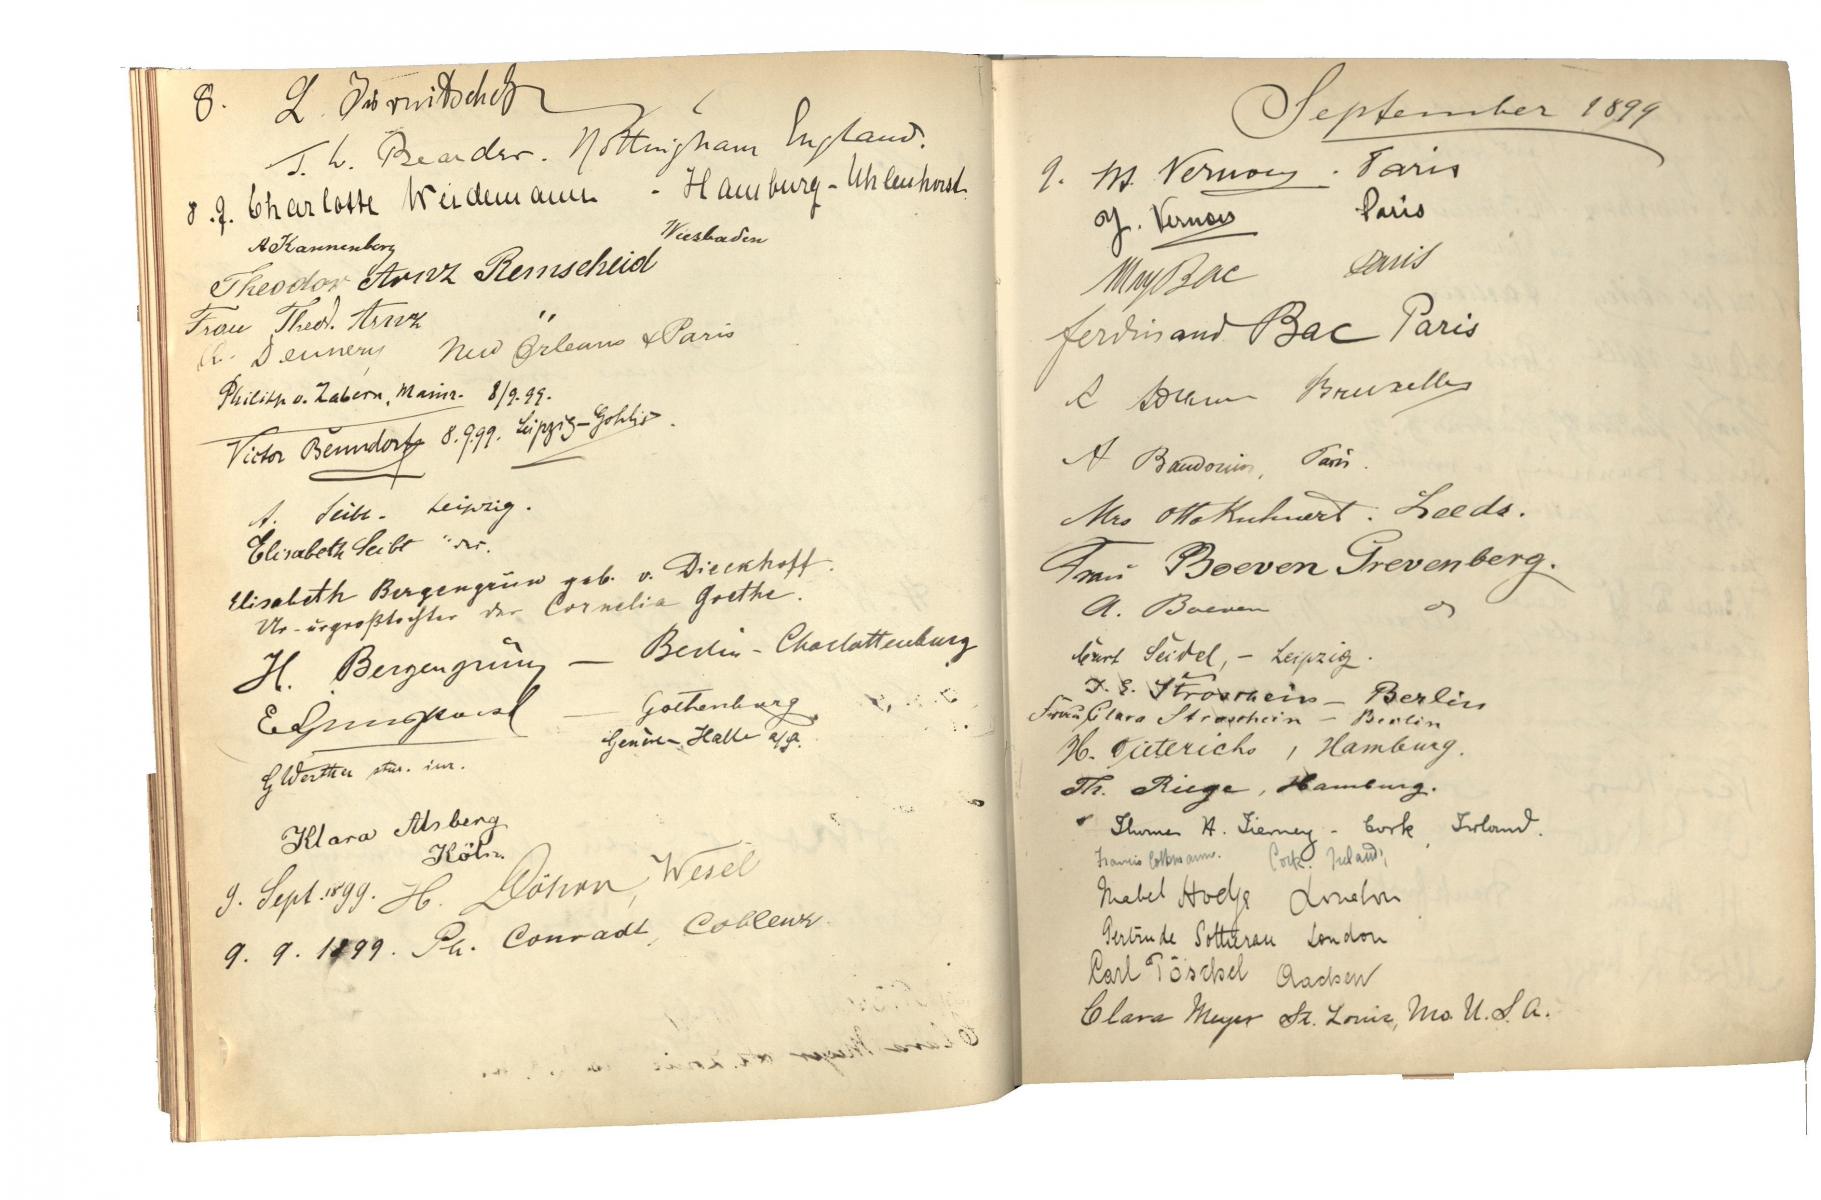 8. L.
T. h. Bearder. Nottingham England.
8.9. Charlotte Weidemann - Hamburg-Uhlenhorst
A Kannenberg Wiesbaden
Theodor Arnz Remscheid
Frau Theod. Arnz "
Dennery New Orleans & Paris
Philipp v. Zabern, Mainz. 8/9.99.
Victor Benndorf 8.9.99. Leipzig-Gohlis.
A. Seibt - Leipzig.
Elisabeth Seibt " do.
Elisabeth Bergengrün geb. v. Dieckhoff.
Ur-urgroßtochter der Cornelia Goethe.
H. Bergengrün — Berlin-Charlottenburg
— Gothenburg
G Werther stud. iur. Halle a/S.
Klara Alsberg
Köln.
9. Sept. 1899. H. Döhrn, Wesel
9. 9. 1899. Ph. Conradt, Coblenz.
September 1899
9. M. Vernon. Paris
Y. Vernois Paris
Mny Bac Paris
ferdinand Bac Paris
A Bruxelles
A Baudouin, Paris.
Mrs Otto Kuhnert. Leeds.
Frau Boeven Grevenberg.
A. Boeven do
Curt Seidel, - Leipzig.
Stroschein - Berlin
Frau Clara Stroschein - Berlin
H. Dieterichs, Hamburg.
Th. Riege, Hamburg.
Thomas A. Tierney - Cork, Ireland.
Francis Cork. Ireland,
Mabel Hodge London
Gertrude Sotheran London
Carl Töschel Aachen
Clara Meyer St. Louis, Mo. U.S.A.